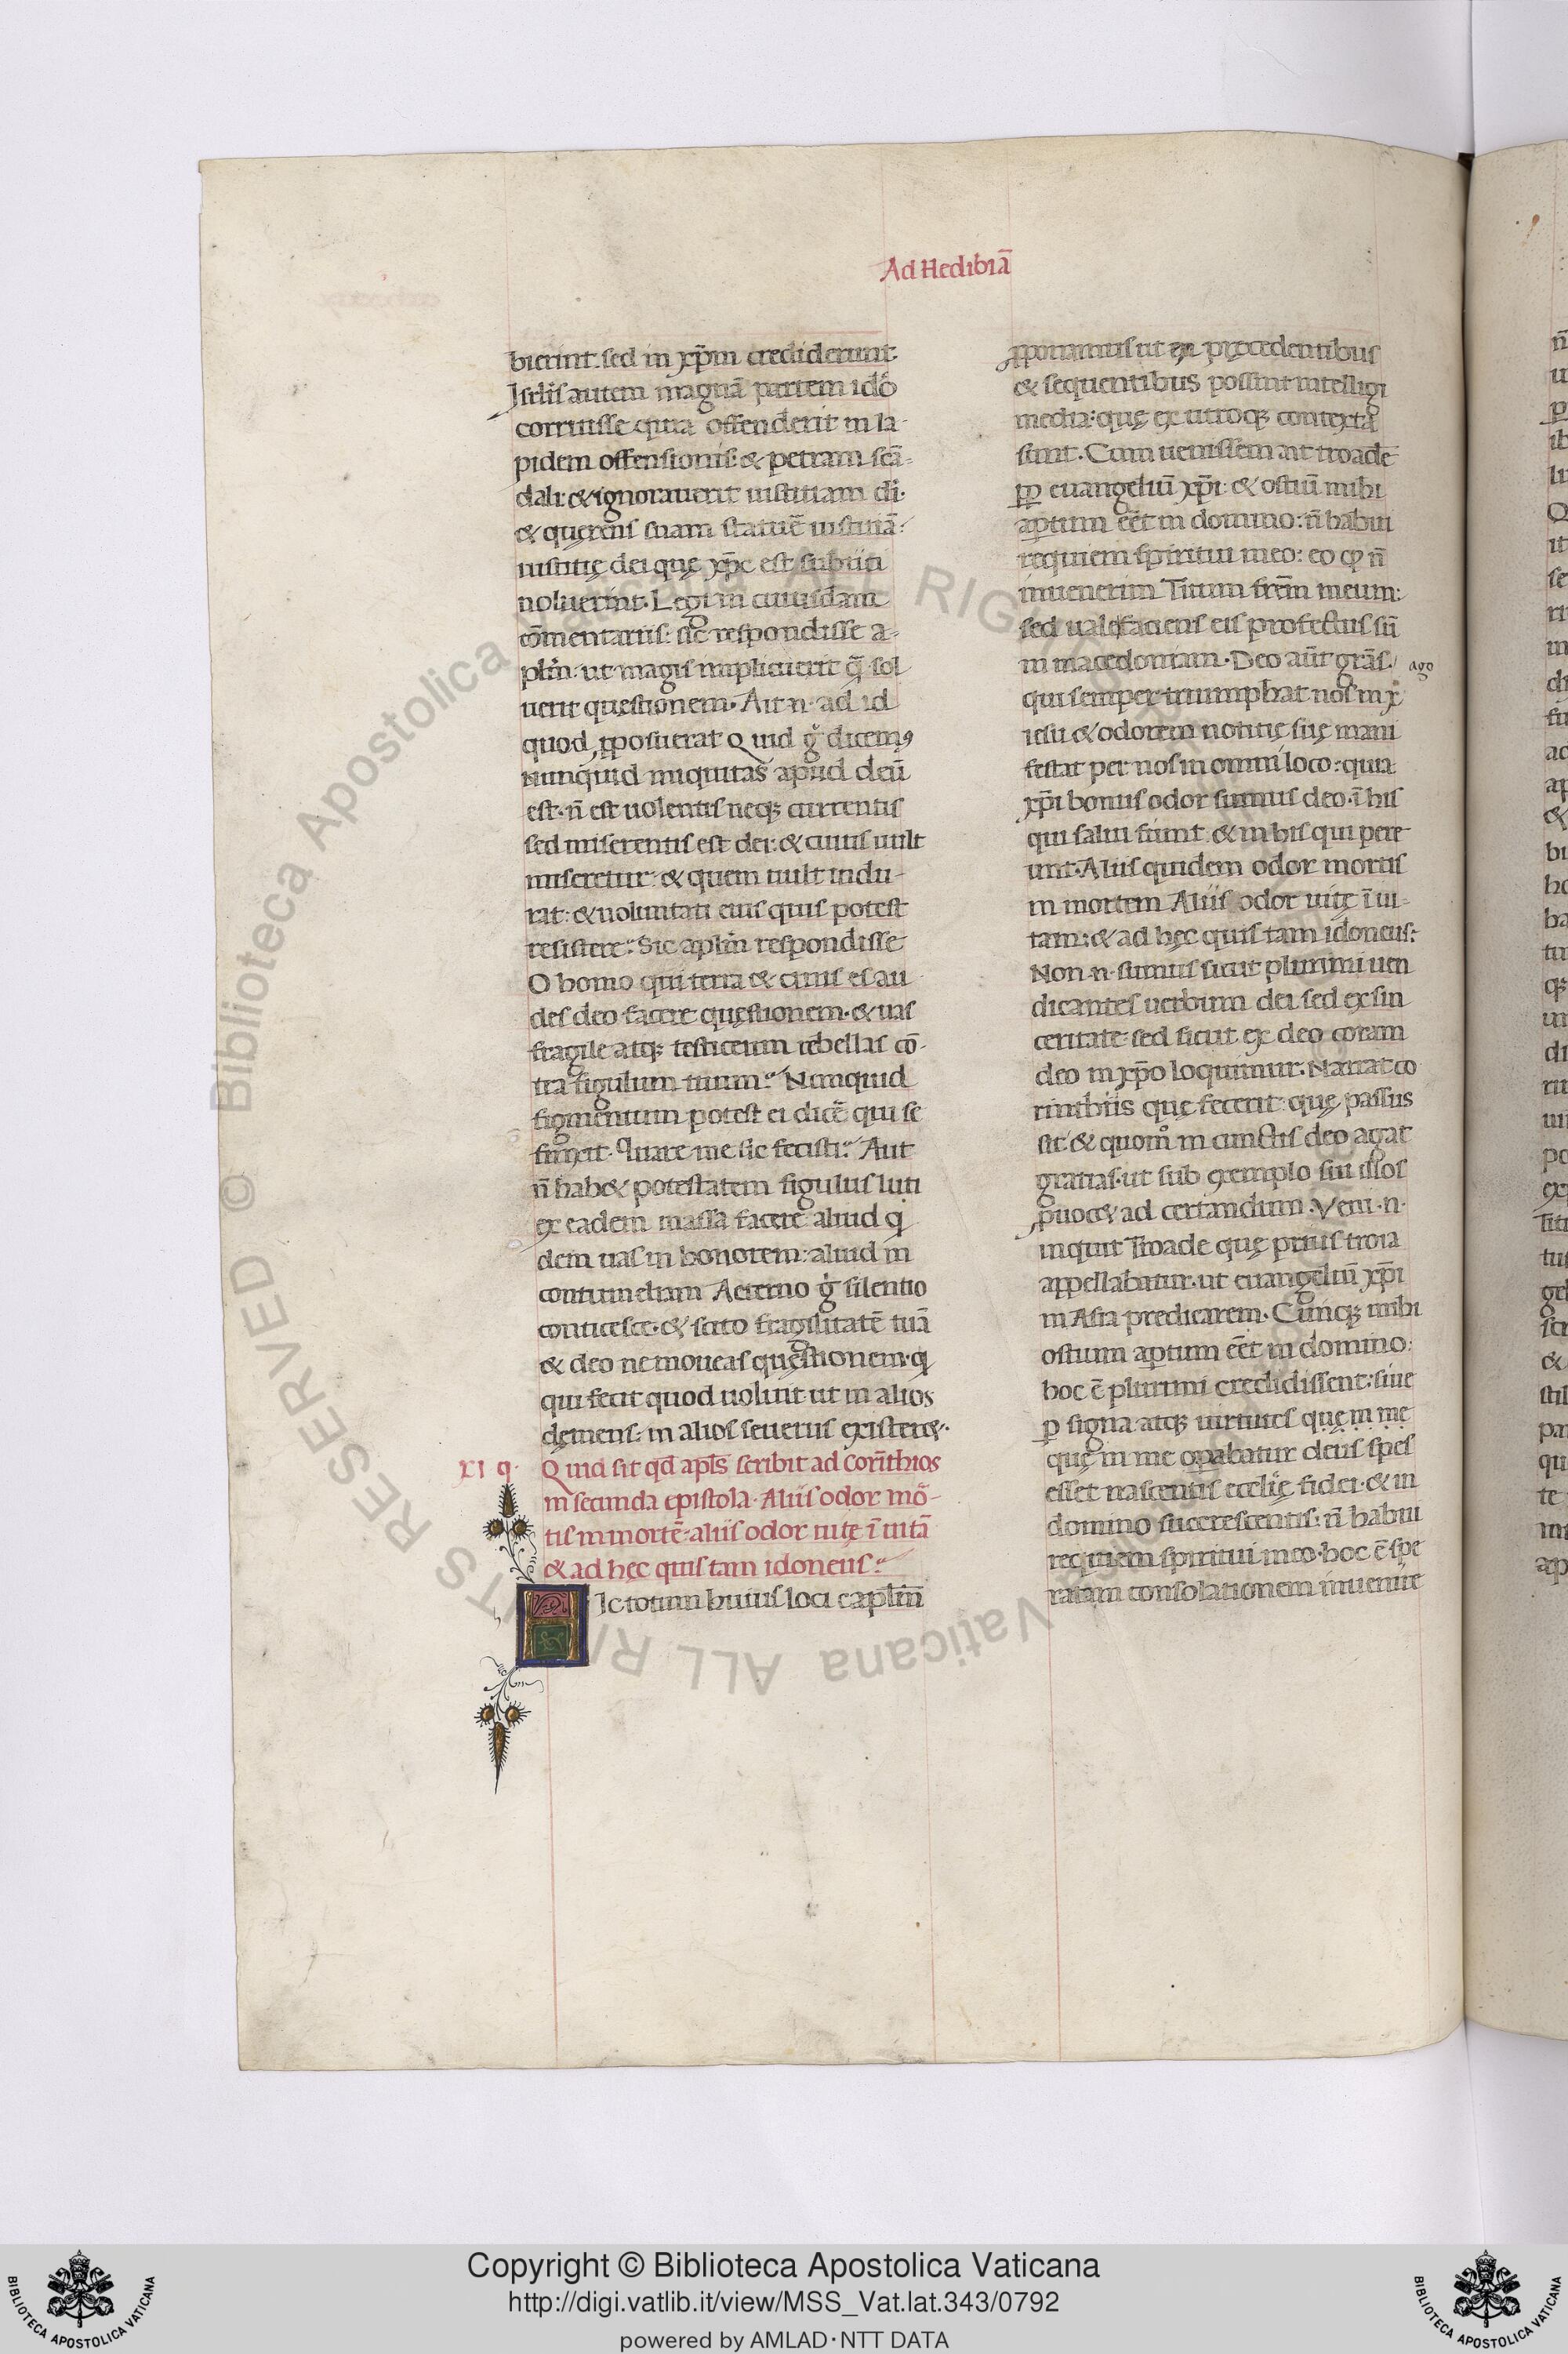 Ad Hedibiā
bierint. sed in xp̄m crediderunt.
Isrl̄is autem magnā partem idō
corruisse quia offenderit in la-
pidem offensionis: & petram scā-
dali: & ignorauerit iustitiam dī.
& quęrens suam statuē iustitiā:
iustitię dei quę xp̄c est subiici
noluerint. Legi in cuiusdam
cōmentariis: sic respondisse a-
plm̄: ut magis implicuerit q̄ sol
uerit quęstionem. Ait n. ad id
quod ꝓposuerat Quid g̊ dicemꝰ
Nunquid iniquitas apud deū
est. n̄ est uolentis neqꝫ currentis
sed miserentis est dei: & cuius uult
miseretur: & quem uult indu-
rat: & uoluntati eius quis potest
resistere: Sic aplm̄ respondisse
O homo qui terra & cinis es au
des deo facere quęstionem. & uas
fragile atqꝫ testiceum rebellas cō-
tra figulum tuum: Nunquid
figmentum potest ei dicē qui se
finxit. Quare me sic fecisti: Aut
n̄ hab& potestatem figulus luti
ex eadem massa facere aliud q
dem uas in honorem: aliud in
contumeliam Aeterno g̊ silentio
conticesce. & scito fragilitatē tuā
& deo ne moueas quęstionem. q
qui fecit quod uoluit ut in alios
clemens: in alios seuerus exister&.
XI q. Quid sit qd̄ apl̄s scribit ad corīthios
in secunda epistola. Aliis odor mō-
tis in mortē: aliis odor uitę ī uitā
& ad hęc quis tam idoneus:
Ic totum huius loci caplm̄
ꝓponamus ut ex pręcedentibus
& sequentibus possint intelligi
media: quę ex utroqꝫ contexta
sunt. Cum uenissem ait troadē
ꝓp euangeliū xp̄i: & ostiū mihi
apertum eēt in domino: n̄ habui
requiem spiritui meo: eo qꝙ n̄
inuenerim Titum frēm meum:
sed ualefaciens eis profectus sū
in macedoniam. Deo aūt grās / ago
qui semper triumphat nos in x̄
iesu & odorem notitię suę mani
festat per nos in omni loco: quia
xp̄i bonus odor sumus deo. ī his
qui salui fiunt & in his qui pere
unt. Aliis quidem odor mortis
in mortem Aliis odor uitę ī ui-
tam: & ad hęc quis tam idoneus:
Non n. sumus sicut plurimi uen
dicantes uerbum dei sed ex sin
ceritate sed sicut ex deo coram
deo in xp̄o loquimur. Narrat co
rinthiis quę fecerit: quę passus
sit & quom̊ in cunctis deo agat
gratias. ut sub exemplo sui illos
ꝓuoc& ad certandum. Veni. n.
inquit Troade quę prius troia
appellabatur. ut euangeliū xp̄i
in Asia predicarem. Cunqꝫ mihi
ostium apertum eēt in domino:
hoc ē plurimi credidissent: siue
p signa atqꝫ uirtutes quę in me
quę in me opabatur deus spes
esset nascentis ecclię fidei. & in
domino succrescentis: n̄ habui
requiem spiritui meo. hoc ē spe
ratam consolationem inuenire
Copyright © Biblioteca Apostolica Vaticana
http://digi.vatlib.it/view/MSS_Vat.lat.343/0792
powered by AMLAD·NTT DATA